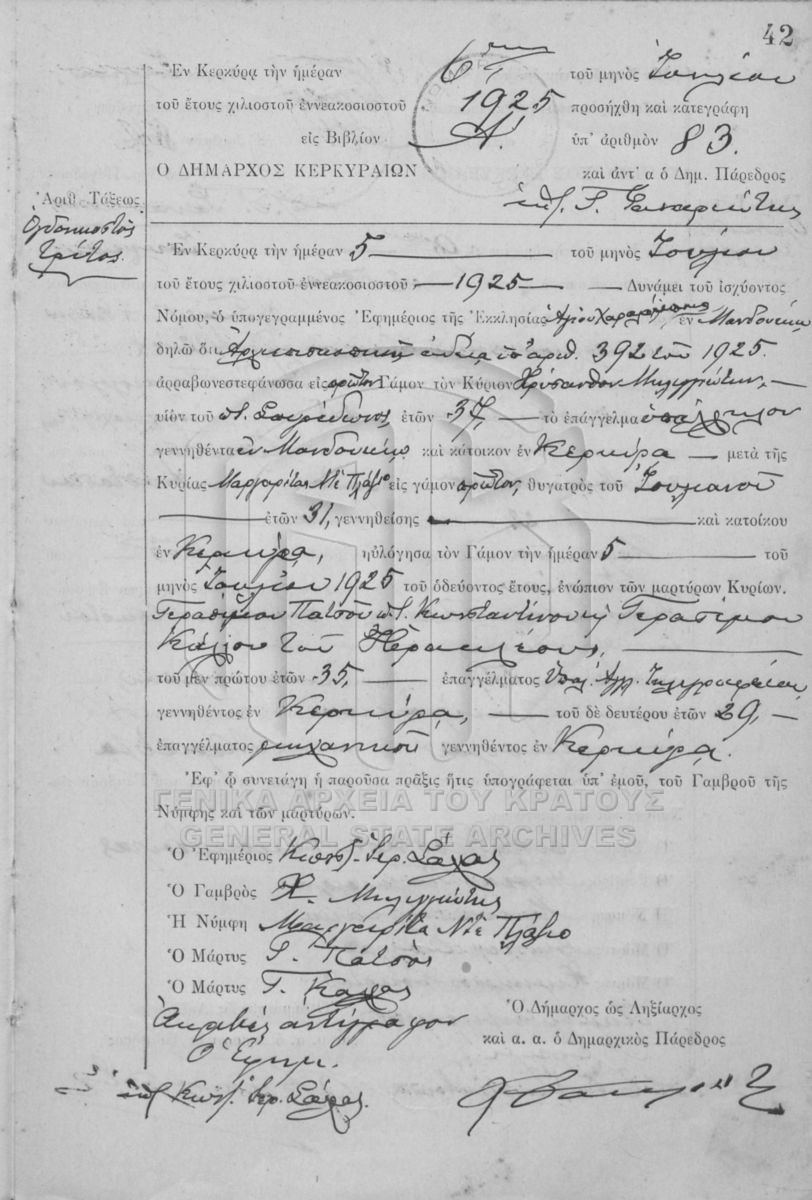 42
Ἐν Κερκύρᾳ τὴν ἡμέραν 6ην τοῦ μηνὸς Ἰουλίου
τοῦ ἔτους χιλιοστοῦ ἐννεακοσιοστοῦ 1925 προσήχθη καὶ κατεγράφη
εἰς Βιβλίον Α΄. ὑπ' ἀριθμὸν 83.
Ο ΔΗΜΑΡΧΟΣ ΚΕΡΚΥΡΑΙΩΝ καὶ ἀντ' α ὁ Δημ. Πάρεδρος
Ἀριθ. Τάξεως
Ὀγδοηκοστὸς
τρίτος.
Ἐν Κερκύρᾳ τὴν ἡμέραν 5 τοῦ μηνὸς Ἰουλίου
τοῦ ἔτους χιλιοστοῦ ἐννεακοσιοστοῦ 1925 Δυνάμει τοῦ ἰσχύοντος
Νόμου, ὁ ὑπογεγραμμένος Ἐφημέριος τῆς Ἐκκλησίας Ἁγίου Χαραλάμπους ἐν Μανδουκίῳ
δηλῶ ὅτι Ἀρχιεπισκοπικῇ ἀδείᾳ ὑπ' ἀριθ. 392 τοῦ 1925.
ἀρραβωνεστεφάνωσα εἰς πρῶτον Γάμον τὸν Κύριον Χρύσανθον
υἱὸν τοῦ π. Σπυρίδωνος, ἐτῶν 37, τὸ ἐπάγγελμα ὑπάλληλον
γεννηθέντα ἐν Μανδουκίῳ καὶ κάτοικον ἐν Κερκύρᾳ μετὰ τῆς
Κυρίας Μαργαρίτας Ντὲ Πλάβιο εἰς γάμον πρῶτον, θυγατρὸς τοῦ Ἰουλιανοῦ
ἐτῶν 31, γεννηθείσης καὶ κατοίκου
ἐν Κερκύρᾳ, ηὐλόγησα τὸν Γάμον τὴν ἡμέραν 5 τοῦ
μηνὸς Ἰουλίου 1925 τοῦ ὁδεύοντος ἔτους, ἐνώπιον τῶν μαρτύρων Κυρίων.
Γερασίμου Πατσοῦ π. Κωνσταντίνου κ Γερασίμου
Κάλλου τοῦ Ἡρακλέους,
τοῦ μὲν πρώτου ἐτῶν 35, ἐπαγγέλματος Ὑπαλ. Ἀγγ. Τηλεγραφείου,
γεννηθέντος ἐν Κερκύρᾳ, τοῦ δὲ δευτέρου ἐτῶν 29,
ἐπαγγέλματος μηχανικοῦ γεννηθέντος ἐν Κερκύρᾳ.
Ἐφ' ᾧ συνετάγη ἡ παροῦσα πρᾶξις ἥτις ὑπογράφεται ὑπ' ἐμοῦ, τοῦ Γαμβροῦ τῆς
Νύμφης καὶ τῶν μαρτύρων.
ΓΕΝΙΚΑ ΑΡΧΕΙΑ ΤΟΥ ΚΡΑΤΟΥΣ
GENERAL STATE ARCHIVES
Ὁ Ἐφημέριος Κωνστ. Ἱερ.
Ὁ Γαμβρὸς Χ.
Ἡ Νύμφη Μαργαρίτα Ντὲ Πλάβιο
Ὁ Μάρτυς Γ. Πατσὸς
Ὁ Μάρτυς Γ. Κάλλος
Ἀκριβὲς ἀντίγραφον
Ὁ Ἐφημ.
Κωνστ. Ἱερ.
Ὁ Δήμαρχος ὡς Ληξίαρχος
καὶ α. α. ὁ Δημαρχικὸς Πάρεδρος